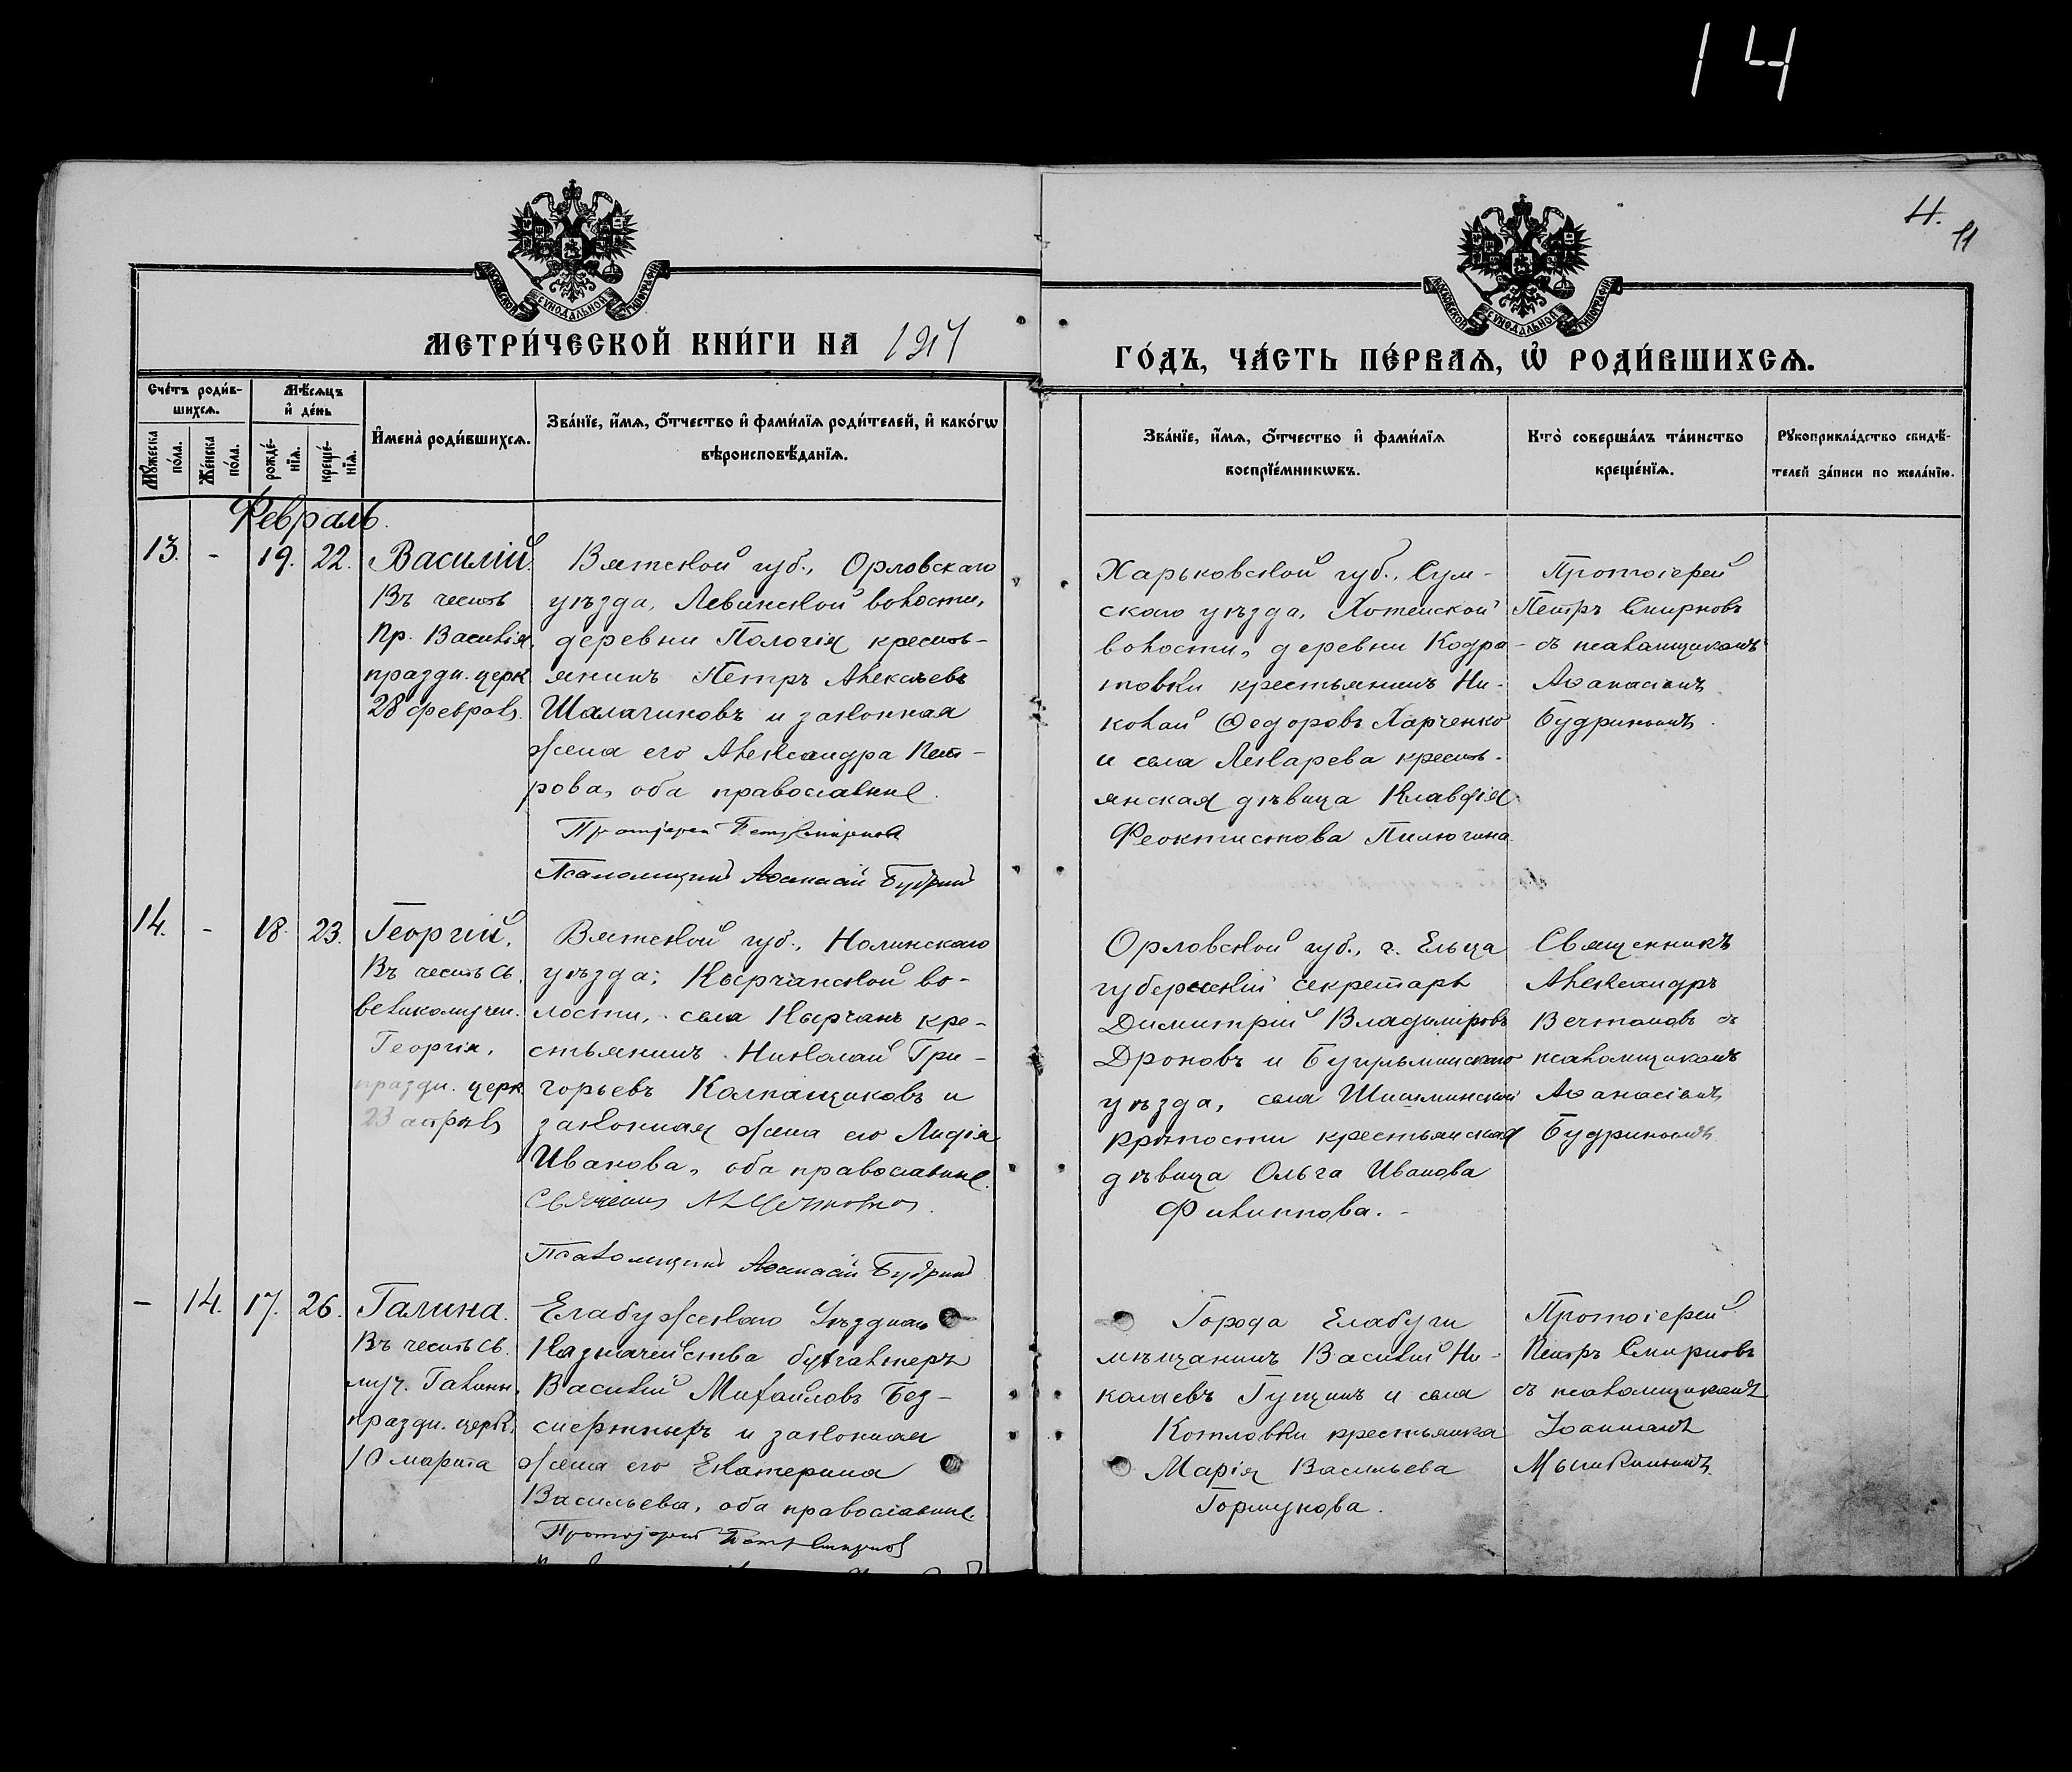 14
4.
11
МОСКОВСКОЙ СѴНОДАЛЬНОЙ ТИПОГРАФІИ
МОСКОВСКОЙ СѴНОДАЛЬНОЙ ТИПОГРАФІИ
МЕТРИ́ЧЕСКОЙ КНИ́ГИ НА 1917
ГО́ДЪ, ЧА́СТЬ ПЕ́РВАѦ, Ѡ҆ РОДИ́ВШИХСѦ.
Сче́тъ роди́в-
шихсѧ.
Мѣ́сѧцъ
и҆ де́нь
Мꙋ́жеска
по́ла.
Же́нска
по́ла.
рожде́-
нїѧ.
креще́-
нїѧ.
И҆мена̀ роди́вшихсѧ.
Зва́нїе, и҆́мѧ, ѻ҆́тчество и҆ фами́лїѧ роди́телей, и҆ како́гѡ
вѣроисповѣ́данїѧ.
Зва́нїе, и҆́мѧ, ѻ҆́тчество и҆ фами́лїѧ
воспрїе́мникѡвъ.
Кто̀ соверша́лъ та́инство
креще́нїѧ.
Рꙋкоприкла́дство свидѣ́-
телей за́писи по жела́нїю.
Февраль.
13. - 19. 22. Василій.
Въ честь
Пр. Василія,
праздн. церк.
28 февраля.
Вятской губ., Орловскаго
уѣзда, Левинской волости,
деревни Пологія кресть-
янинъ Петръ Алексѣевъ
Шалагиновъ и законная
жена его Александра Пет-
рова, оба православные.
Протоіерей Петръ Смирновъ
Псаломщикъ Аѳанасій Будринъ
Харьковской губ., Сум-
скаго уѣзда, Хотенской
волости, деревни Кодра-
товки крестьянинъ Ни-
колай Ѳедоровъ Харченко
и села Лекарева кресть-
янская дѣвица Клавдія
Феоктистова Пилюгина.
Протоіерей
Петръ Смирновъ
съ псаломщикомъ
Аѳанасіемъ
Будринымъ.
14. - 18. 23. Георгій.
Въ честь св.
великомучен.
Георгія,
праздн. церк.
23 апрѣля
Вятской губ., Нолинскаго
уѣзда, Кырчанской во-
лости, села Кырчанъ кре-
стьянинъ Николай Гри-
горьевъ Колпащиковъ и
законная жена его Лидія
Иванова, оба православные.
Псаломщикъ Аѳанасій Будринъ
Орловской губ., г. Ельца
губернскій секретарь
Димитрій Владиміровъ
Дроновъ и Бугульминскаго
уѣзда, села Шешминской
крѣпости крестьянская
дѣвица Ольга Иванова
Филиппова.
Священникъ
Александръ
Вечтомовъ съ
псаломщикомъ
Аѳанасіемъ
Будринымъ
- 14. 17. 26. Галина.
Въ честь св.
муч. Галины,
праздн. церк.
10 марта
Елабужскаго Уѣзднаго
Казначейства бухгалтеръ
Василій Михайловъ Без-
смертныхъ и законная
жена его Екатерина
Васильева, оба православные.
Протоіерей Петръ Смирновъ
Города Елабуги
мѣщанинъ Василій Ни-
колаевъ Гущинъ и села
Котловки крестьянка
Марія Васильева
Горшунова.
Протоіерей
Петръ Смирновъ
съ псаломщикомъ
Іоанномъ
Мышкинымъ.